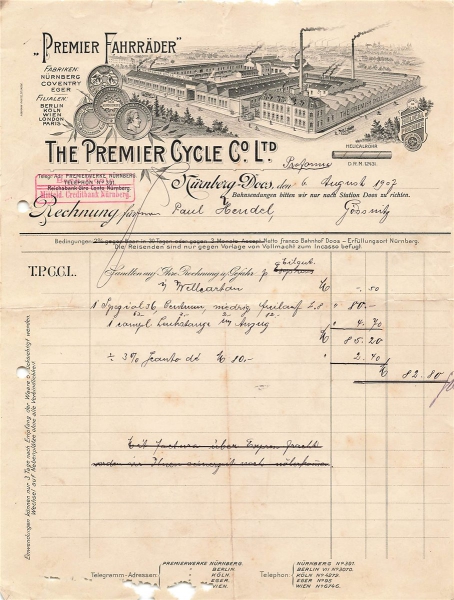 „PREMIER FAHRRÄDER"
FABRIKEN:
NÜRNBERG
COVENTRY
EGER
FILIALEN:
BERLIN
KÖLN
WIEN
LONDON
PARIS
HELICALROHR
D.R.M. 12431.
THE PREMIER CYCLE CO. LTD.
Telegr.-Adr. PREMIERWERKE NÜRNBERG.
TELEPHON No 381.
Reichsbank-Giro-Conto Nürnberg.
Creditbank Nürnberg.
Nürnberg-Doos, den 6 August 1907
Bahnsendungen bitten wir nur nach Station Doos zu richten.
Rechnung für Paul Hendel Gössnitz
Bedingungen: 2% gegen baar in 30 Tagen oder gegen 3 Monats Accept Netto franco Bahnhof Doos – Erfüllungsort Nürnberg.
Die Reisenden sind nur gegen Vorlage von Vollmacht zum Incasso befugt.
T.P.C.C.L. Sandten auf Ihre Rechnung u. Gefahr p Eilgut
-.50
1 Spezial 36, freilauf 80.-
1 4.70
85.20
÷ 3% 2.40
82.80
Einwendungen können nur 3 Tage nach Empfang der Waare berücksichtigt werden.
Wechsel auf Nebenplätze ohne alle Verbindlichkeit
Telegramm-Adressen:
PREMIERWERKE NÜRNBERG.
" BERLIN.
" KÖLN.
" EGER.
" WIEN.
Telephon:
NÜRNBERG No 381.
BERLIN VII No 3070.
KÖLN No 4273.
EGER No 95
WIEN No 6746.